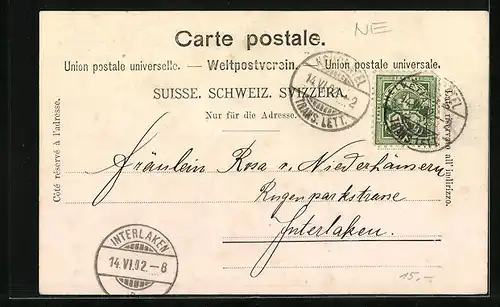 NE
Carte postale.
Union postale universelle. — Weltpostverein. — Unione postale universale.
SUISSE. SCHWEIZ. SVIZZERA.
Nur für die Adresse.
Côté réservé à l'adresse.
Lato riservato all' indirizzo.
14.VI.02
TRANS. LETT.
Fräulein Rosa v. Niederhäusern
Rugenparkstrasse
Interlaken.
INTERLAKEN
14.VI.02.–8
15.–